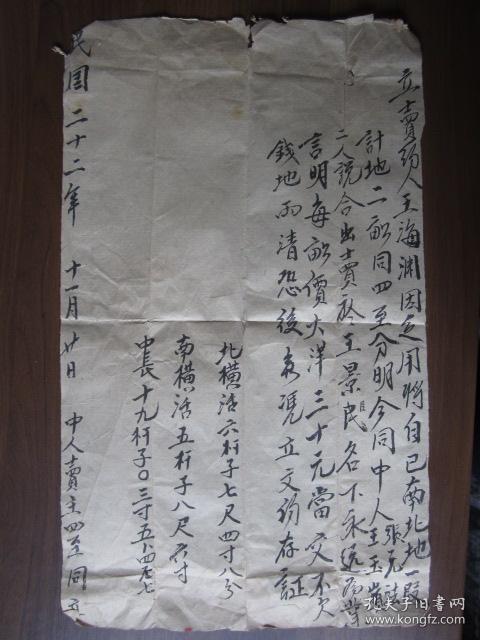 立賣约人王海渊因乏用將自己南北地一段
計地二畝同四至分明今同中人張元 王玉堂
二人説合出賣於王景民名下永远為業
言明每畝價大洋三十元當交不欠
錢地两清恐後無凭立文约存証
北横活六杆子七尺四寸八分
南横活五杆子八尺六寸
中長十九杆子0三寸五
民國二十二年 十一月廿日 中人賣主四至同立
孔夫子旧书网
www.kongfz.com